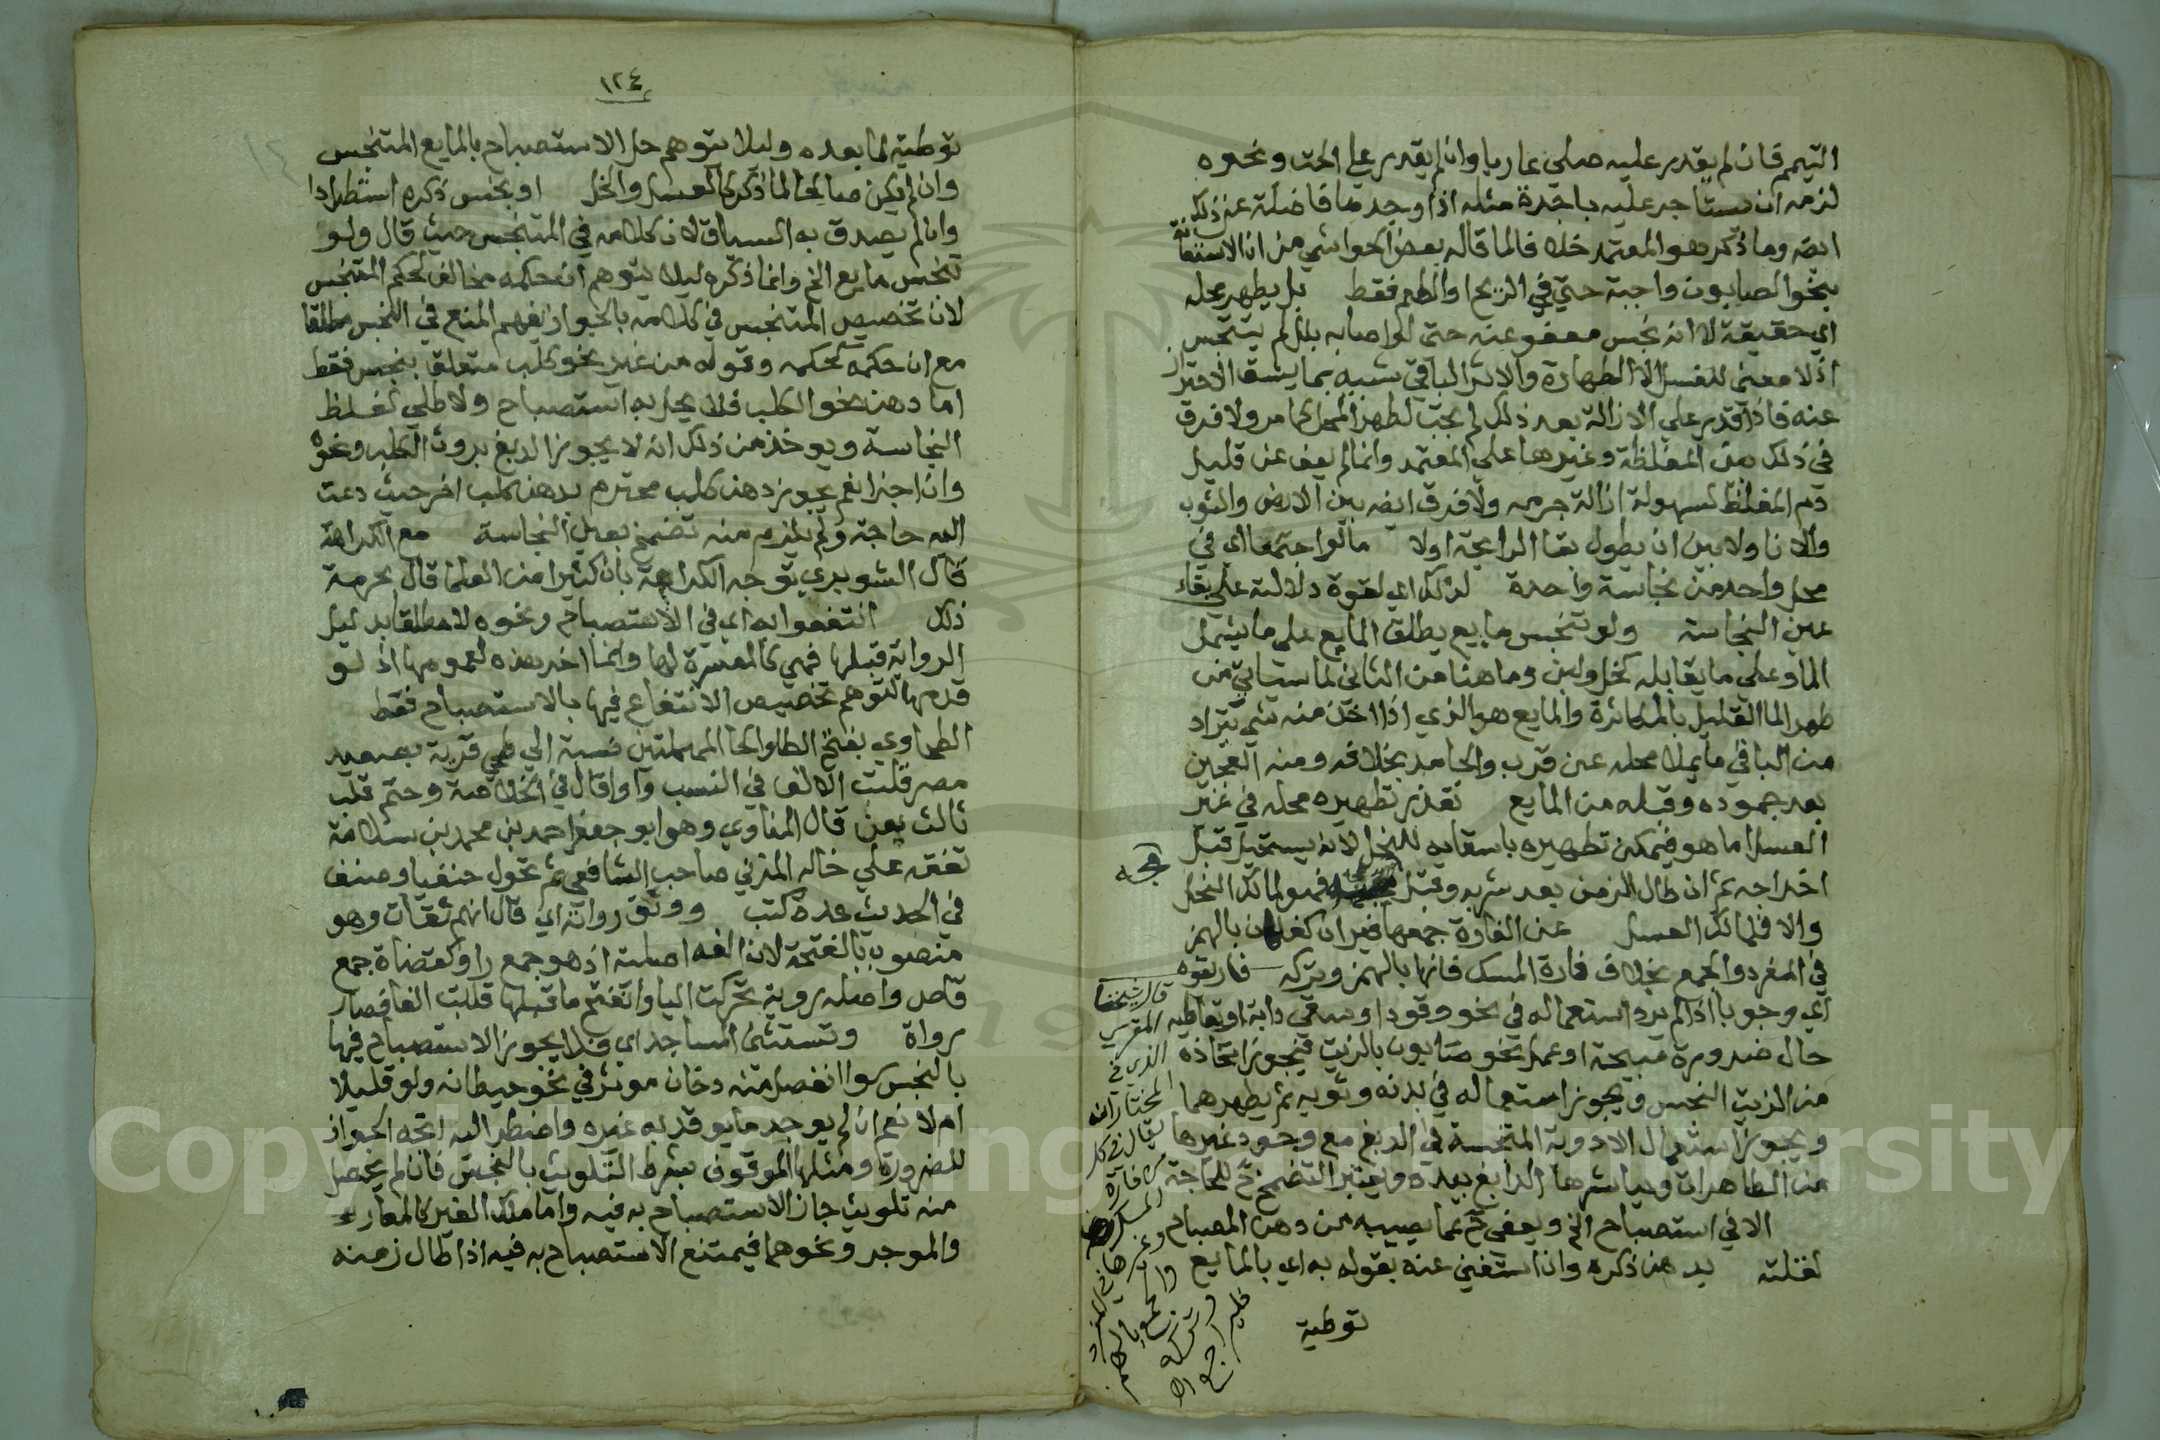 التيمم فان لم يقدر عليه صلي عاريا وان لم يقدر علي الحت ونحوه
لزمه ان يستاجر عليه باجرة مثله اذا وجدها فاضلة عن ذلك
ايضه وما ذكر هو المعتمد خلافا لما قاله بعض الحواشي من ان الاستعانة
بنحو الصابون واجبة حتي في الريح او الطعم فقط بل يطهر محله
اي حقيقة لا انه نجس معفو عنه حتى لو اصابه بلل لم يتنجس
اذ لا معني للغسل الا الطهارة والاثر الباقي شبيه بما يشق الاحتراز
عنه فاذا قدر علي الازالة بعد ذلك لم يجب لطهر المحل كما مر ولا فرق
في ذلك من المغلظة وغيرها علي المعتمد وانما لم يعف عن قليل
دم المغلظ لسهولة ازالة جرمه ولا فرق ايضه بين الارض والثوب
والانا ولا بين ان يطول بقا الرايحة اولا ما لو اجتمعا اي في
محل واحد من نجاسة واحدة لذلك اي لقوة دلالته علي بقاء
عين النجاسة ولو تنجس مايع يطلق المايع علي ما يشمل
الما وعلي ما يقابله كخل ولبن وما هنا من الثاني لما سياتي من
طهر الما القليل بالمكاثرة والمايع هو الذي اذا اخذ منه شي تزاد
من الباقي ما يملا محله عن قرب والجامد بخلافه ومنه العجين
بعد جموده وقبله من المايع تعذر تطهيره محله في غير
العسل اما هو فيمكن تطهيره باسقايه للنحل لانه يستحيل قبل
اخراجه ثم ان طال الزمن بعد شربه وقبل فهو لمالك النحل
والا فلمالك العسل عن الفارة جمعها فيران كغلمان بالهمز
في المفرد والجمع بخلاف فارة المسك فانها بالهمز وتركه فاريقوه
اي وجوبا اذا لم يرد استعماله في نحو وقود او سقي دابة او تعاطيه
حال ضرورة مبيحة او عمل نحو صابون بالزيت فيجوز اتخاذه
من الزيت النجس ويجوز استعماله في بدنه وثوبه ثم يطهرهما
ويجوز استعمال الادوية المتنجسة في الدبغ مع وجود غيرها
من الطاهرات ويباشرها الدابغ بيده ويغتفر التضمخ ح للحاجة
الا في استصباح الخ ويعفي ح عما يصيبه من دهن المصباح
لقلته بدهن ذكره وان استغني عنه بقوله به اي بالمايع
توطية
قال شيخنا
المقرر
الذي في
المختار انه
يقال في كل
من فارة
المسك
وغيرها في المفرد
والجمع بالهمز
وتركه
فليراجع اه
١٢٤
توطية لما بعده وليلا يتوهم حل الاستصباح بالمايع المتنجس
وان لم يكن صالحا لما ذكر كالعسل والخل او بنجس ذكره استطرادا
وان لم يصدق به السياق لان كلامه في المتنجس حيث قال ولو
تنجس مايع الخ وانما ذكره ليلا يتوهم ان حكمه مخالف لحكم المتنجس
لان تخصيص المتنجس في كلامه بالجواز يفهم المنع في النجس مطلقا
مع ان حكمه كحكمه وقوله من غير نحو كلب متعلق بنجس فقط
اما دهن نحو الكلب فلا يحل به استصباح ولا طلي لغلظ
النجاسة ويوخذ من ذلك انه لا يجوز الدبغ بروث الكلب ونحوه
وان اجزا نعم يجوز دهن كلب محترم بدهن كلب اخر حيث دعت
اليه حاجة ولم يلزم منه تضمخ بعين النجاسة مع الكراهة
قال الشوبري يوجه الكراهة بان كثيرا من العلما قال بحرمة
ذلك انتفعوا به اي في الاستصباح ونحوه لا مطلقا بدليل
الرواية قبلها فهي كالمفسرة لها وانما اخر هذه لعمومها اذ لو
قدمها لتوهم تخصيص الانتفاع فيها بالاستصباح فقط
الطحاوي بفتح الطا والحا المهملتين نسبة الي طحي قرية بصعيد
مصر قلبت الالف في النسب واوا قال في الخلاصة وحتم قلب
ثالث يعن قال المناوي وهو ابو جعفر احمد بن محمد بن سلامة
تفقه علي خاله المزني صاحب الشافعي ثم تحول حنفيا وصنف
في الحديث عدة كتب ووثق رواته اي قال انهم ثقات وهو
منصوب بالفتحة لان الفه اصلية اذ هو جمع راو كقضاة جمع
قاص واصله روية تحركت اليا وانفتح ما قبلها قلبت الفا فصار
رواة وتستثني المساجد اي فلا يجوز الاستصباح فيها
بالنجس سوا انفصل منه دخان موثر في نحو حيطانه ولو قليلا
ام لا نعم ان لم يوجد ما يوقد به غيره واضطر اليه اتجه الجواز
للضرورة ومثلها الموقوف بشرط التلويث بالنجس فان لم يحصل
منه تلويث جاز الاستصباح به فيه واما ملك الغير كالمعار
والموجر ونحوهما فيمتنع الاستصباح به فيه اذا طال زمنه
Copyright © King Saud University